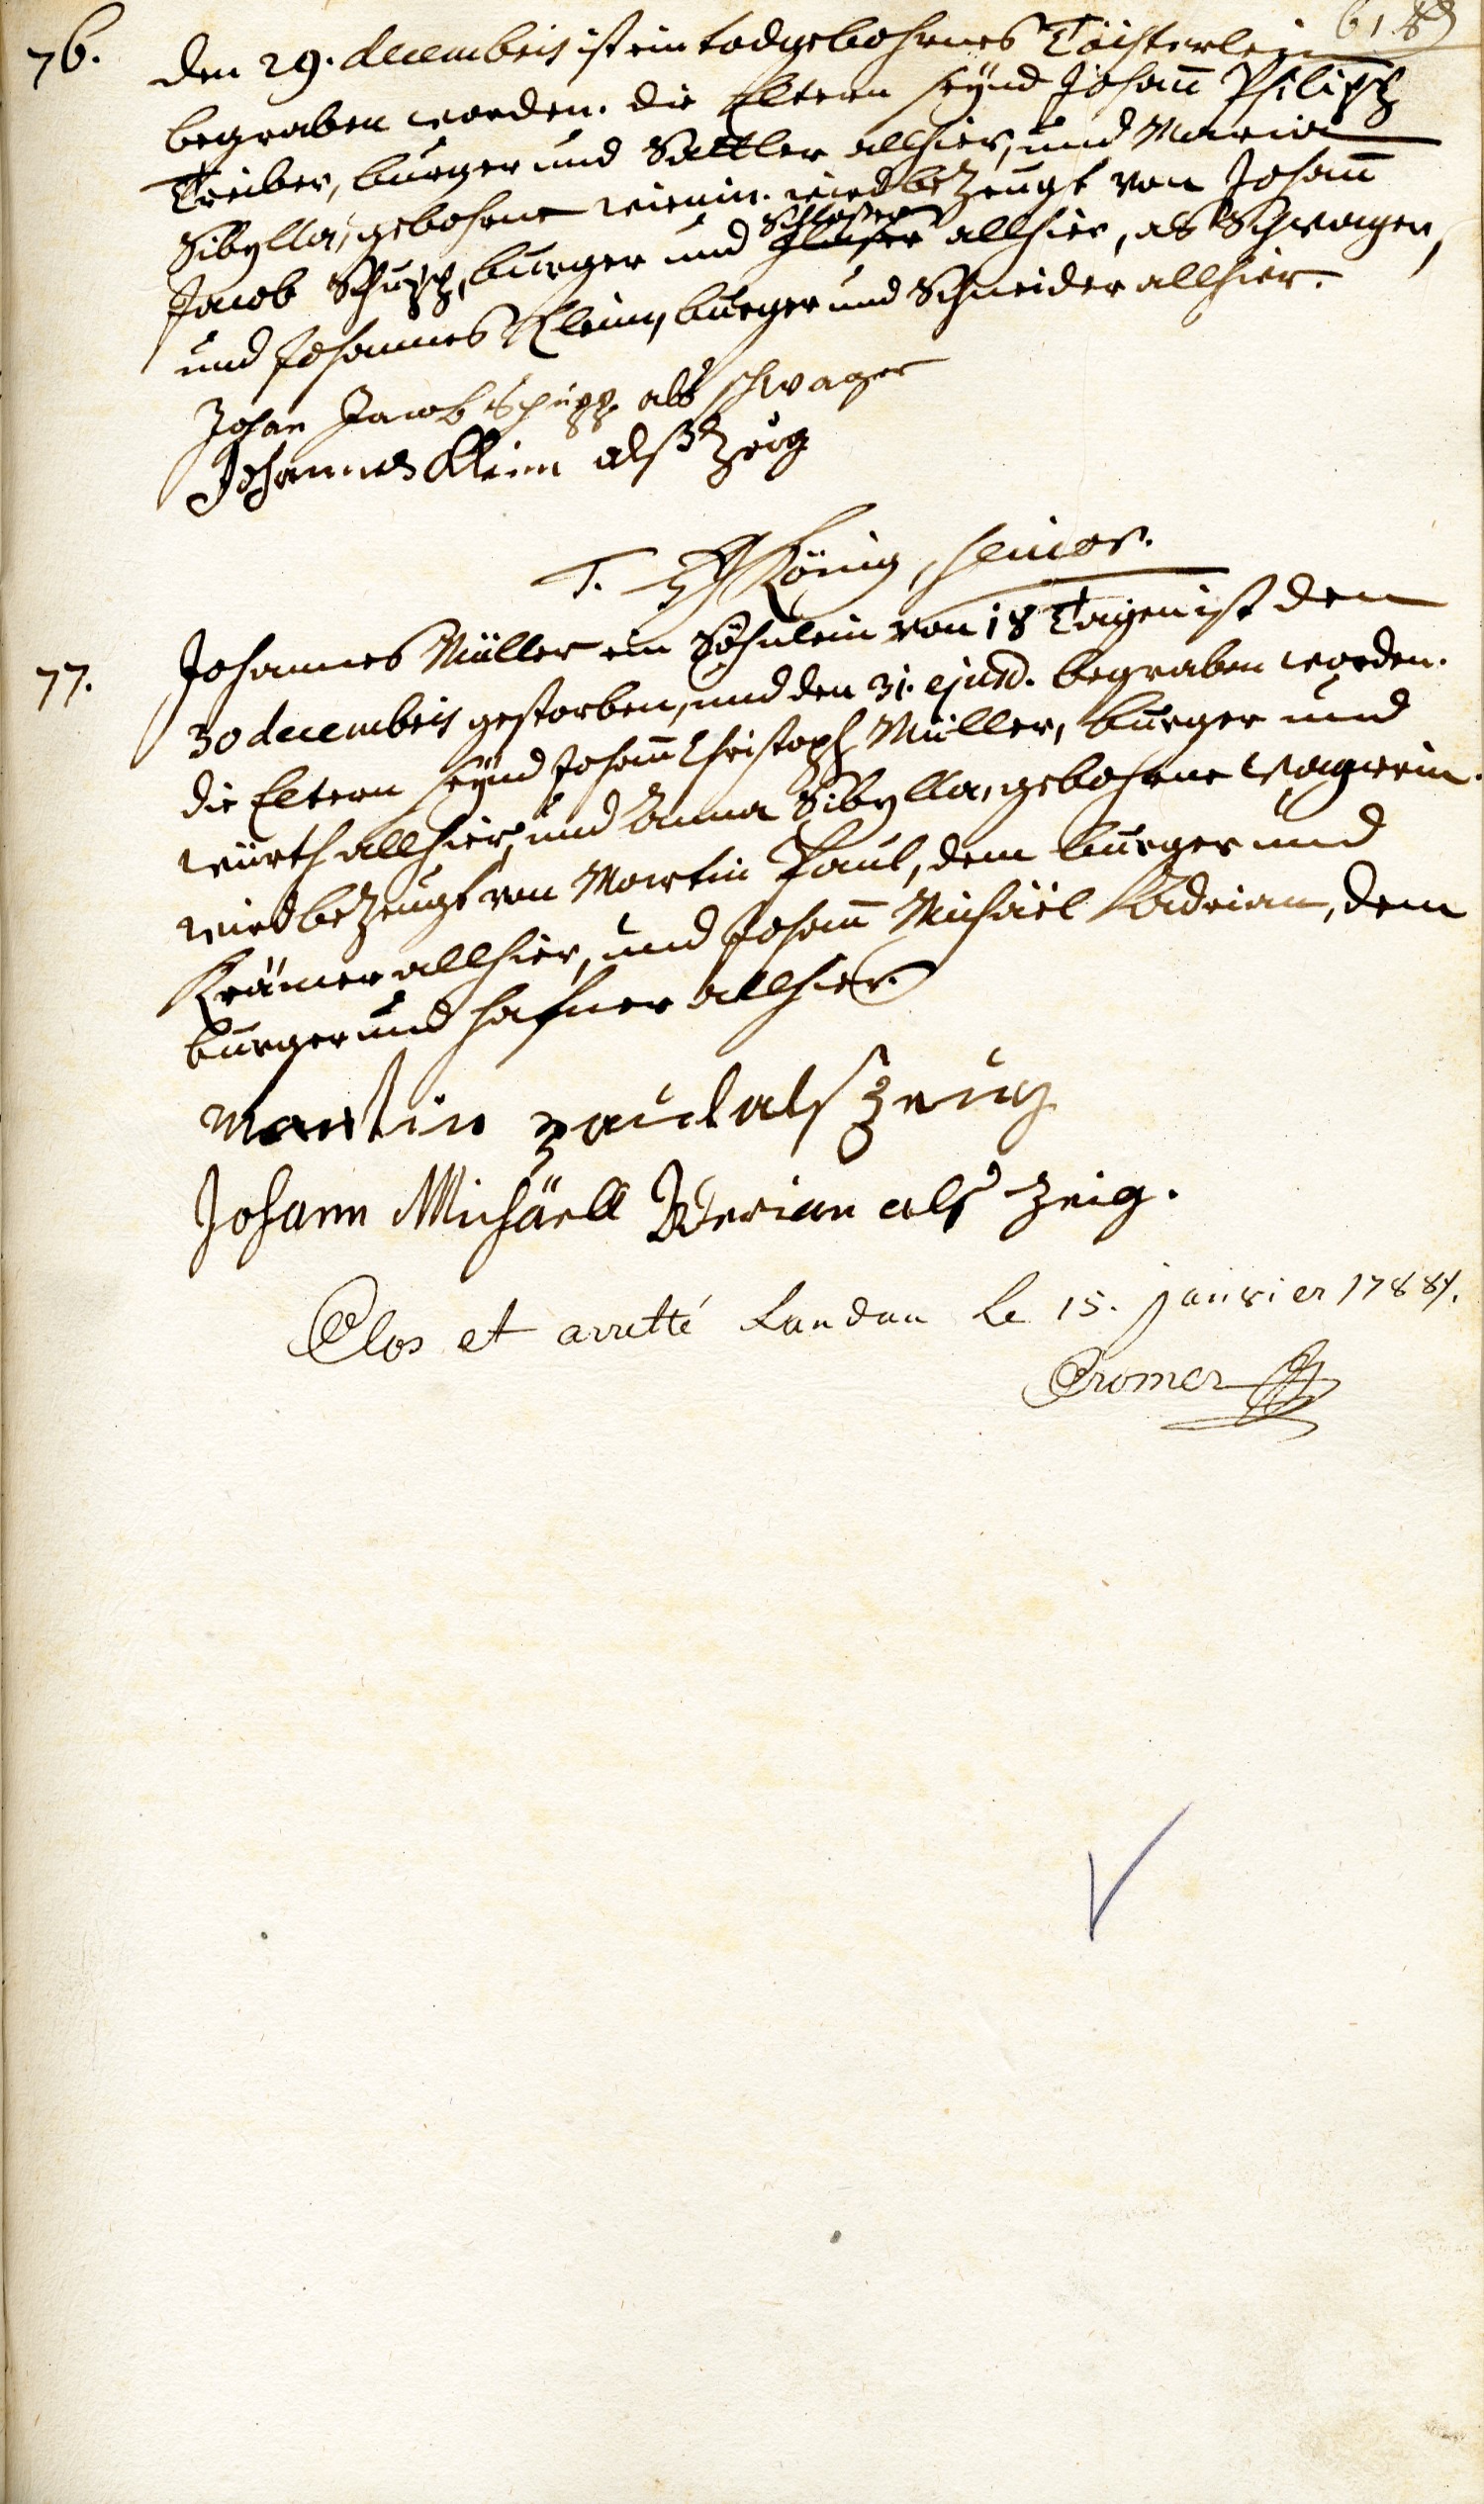 76. den 29. decembris ist ein todgebohrnes Töchterlein
begraben worden. die Eltern seynd Johañ Philipp
Treiber, burger und Sattler allhier, und Maria
Sibylla, gebohrne wird bezeugt von Johañ
Schlosser
Jacob Schupp, burger und Glaser allhier, als Schwager,
und Johannes Klein, burger und Schneider allhier.
Johan Jacob Schupp als schwager
Johannes Klein alß Zeug
König, senior.
77. Johannes Müller ein Söhnlein von 18 Tagen ist den
30 decembris gestorben, und den 31. ejusd. begraben worden.
die Eltern seynd Johañ Christoph Müller, burger und
würth allhier, und Anna Sibylla, gebohrne Wagnerin.
wird bezeugt von Martin Paul, dem burger und
Krämer allhier, und Johañ Michäel Adrian, dem
burger und hafner allhier.
Martin paul alß Zeug
Johann Michäell Aderian alß zeig.
Clos et arretté Landau Le 15. janvier
Cromer